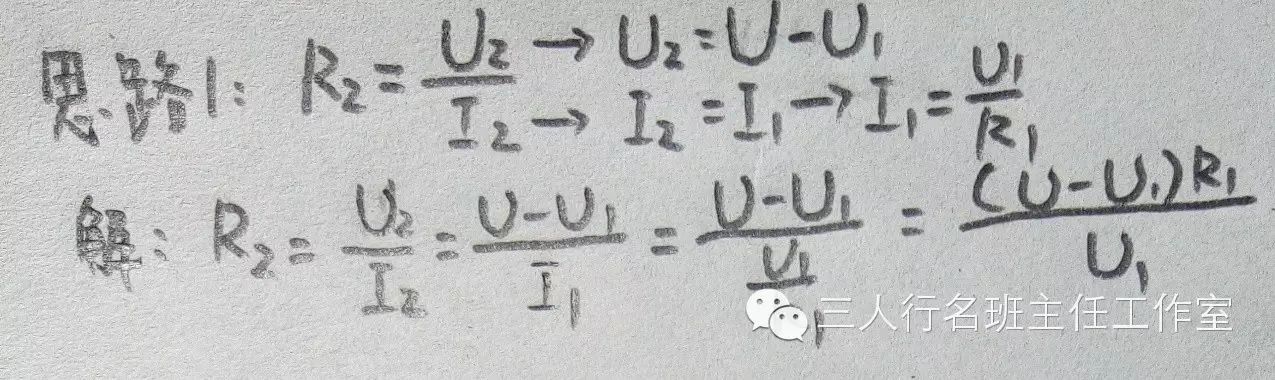 思路1: R₂=U₂/I₂ → U₂=U-U₁
→ I₂=I₁→I₁=U₁/R₁
解: R₂=U₂/I₂=(U-U₁)/I₁=(U-U₁)/(U₁/ ₁)=(U-U₁)R₁/U₁
三人行名班主任工作室